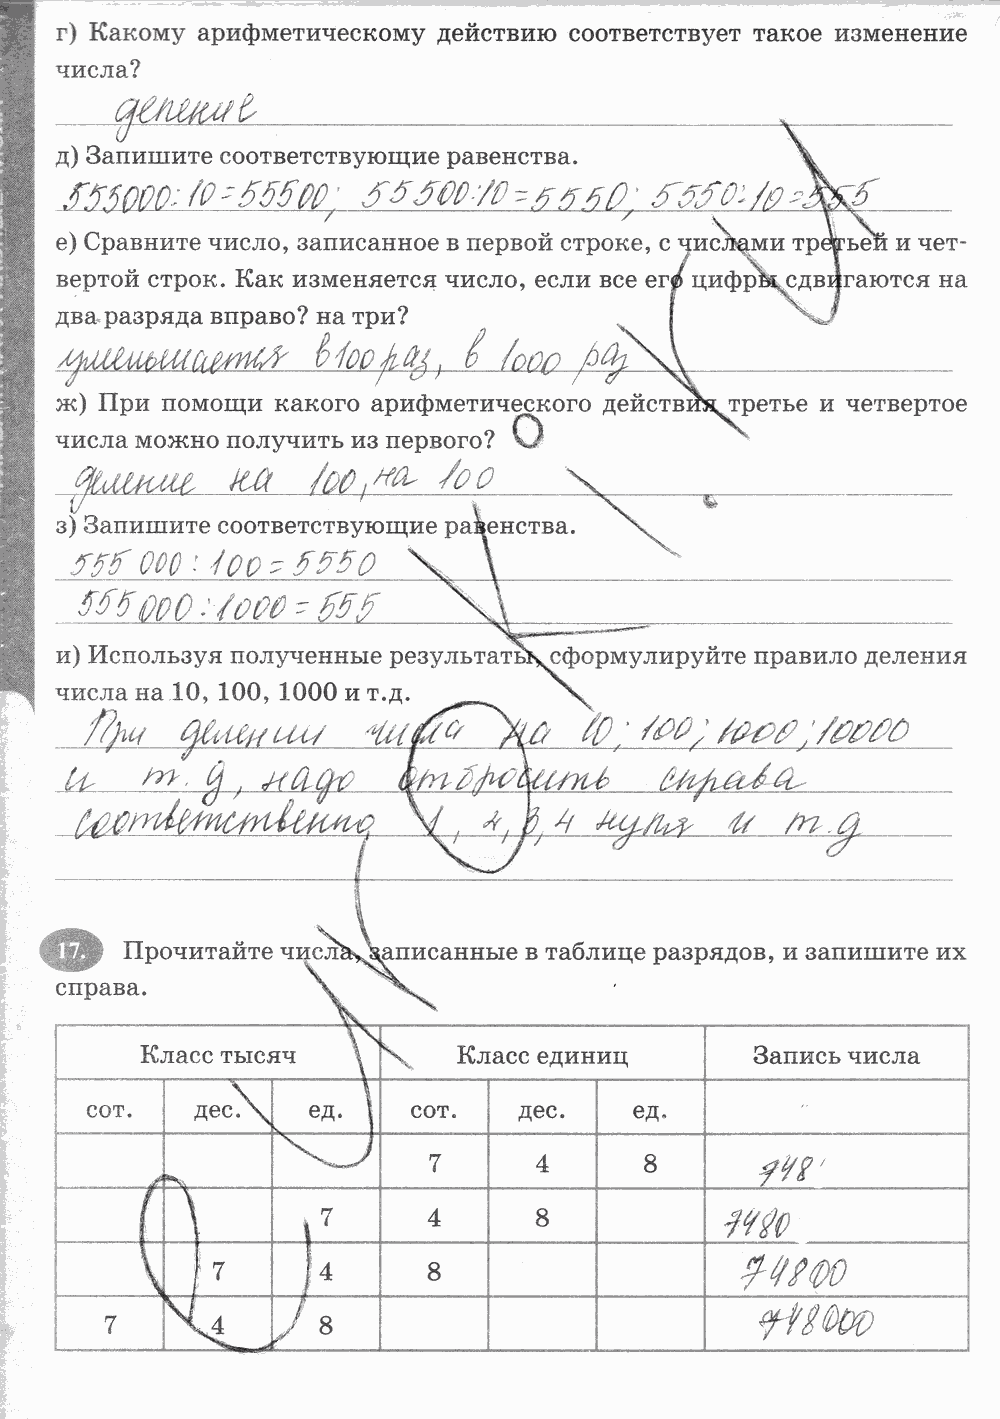 г) Какому арифметическому действию соответствует такое изменение
числа?
деление
д) Запишите соответствующие равенства.
555000:10=55500; 55500:10=5550; 5550:10=555
е) Сравните число, записанное в первой строке, с числами третьей и чет-
вертой строк. Как изменяется число, если все его цифры сдвигаются на
два разряда вправо? на три?
уменьшается в 100 раз, в 1000 раз
ж) При помощи какого арифметического действия третье и четвертое
числа можно получить из первого?
деление на 100, на 100
з) Запишите соответствующие равенства.
555 000 : 100 = 5550
555 000 : 1000 = 555
и) Используя полученные результаты, сформулируйте правило деления
числа на 10, 100, 1000 и т.д.
При делении числа на 10; 100; 1000; 10000
и т.д, надо отбросить справа
соответственно 1, 2, 3, 4 нуля и т.д
17. Прочитайте числа, записанные в таблице разрядов, и запишите их
справа.
Класс тысяч Класс единиц Запись числа
сот. дес. ед. сот. дес. ед.
7 4 8 748
7 4 8 7480
7 4 8 74800
7 4 8 748000